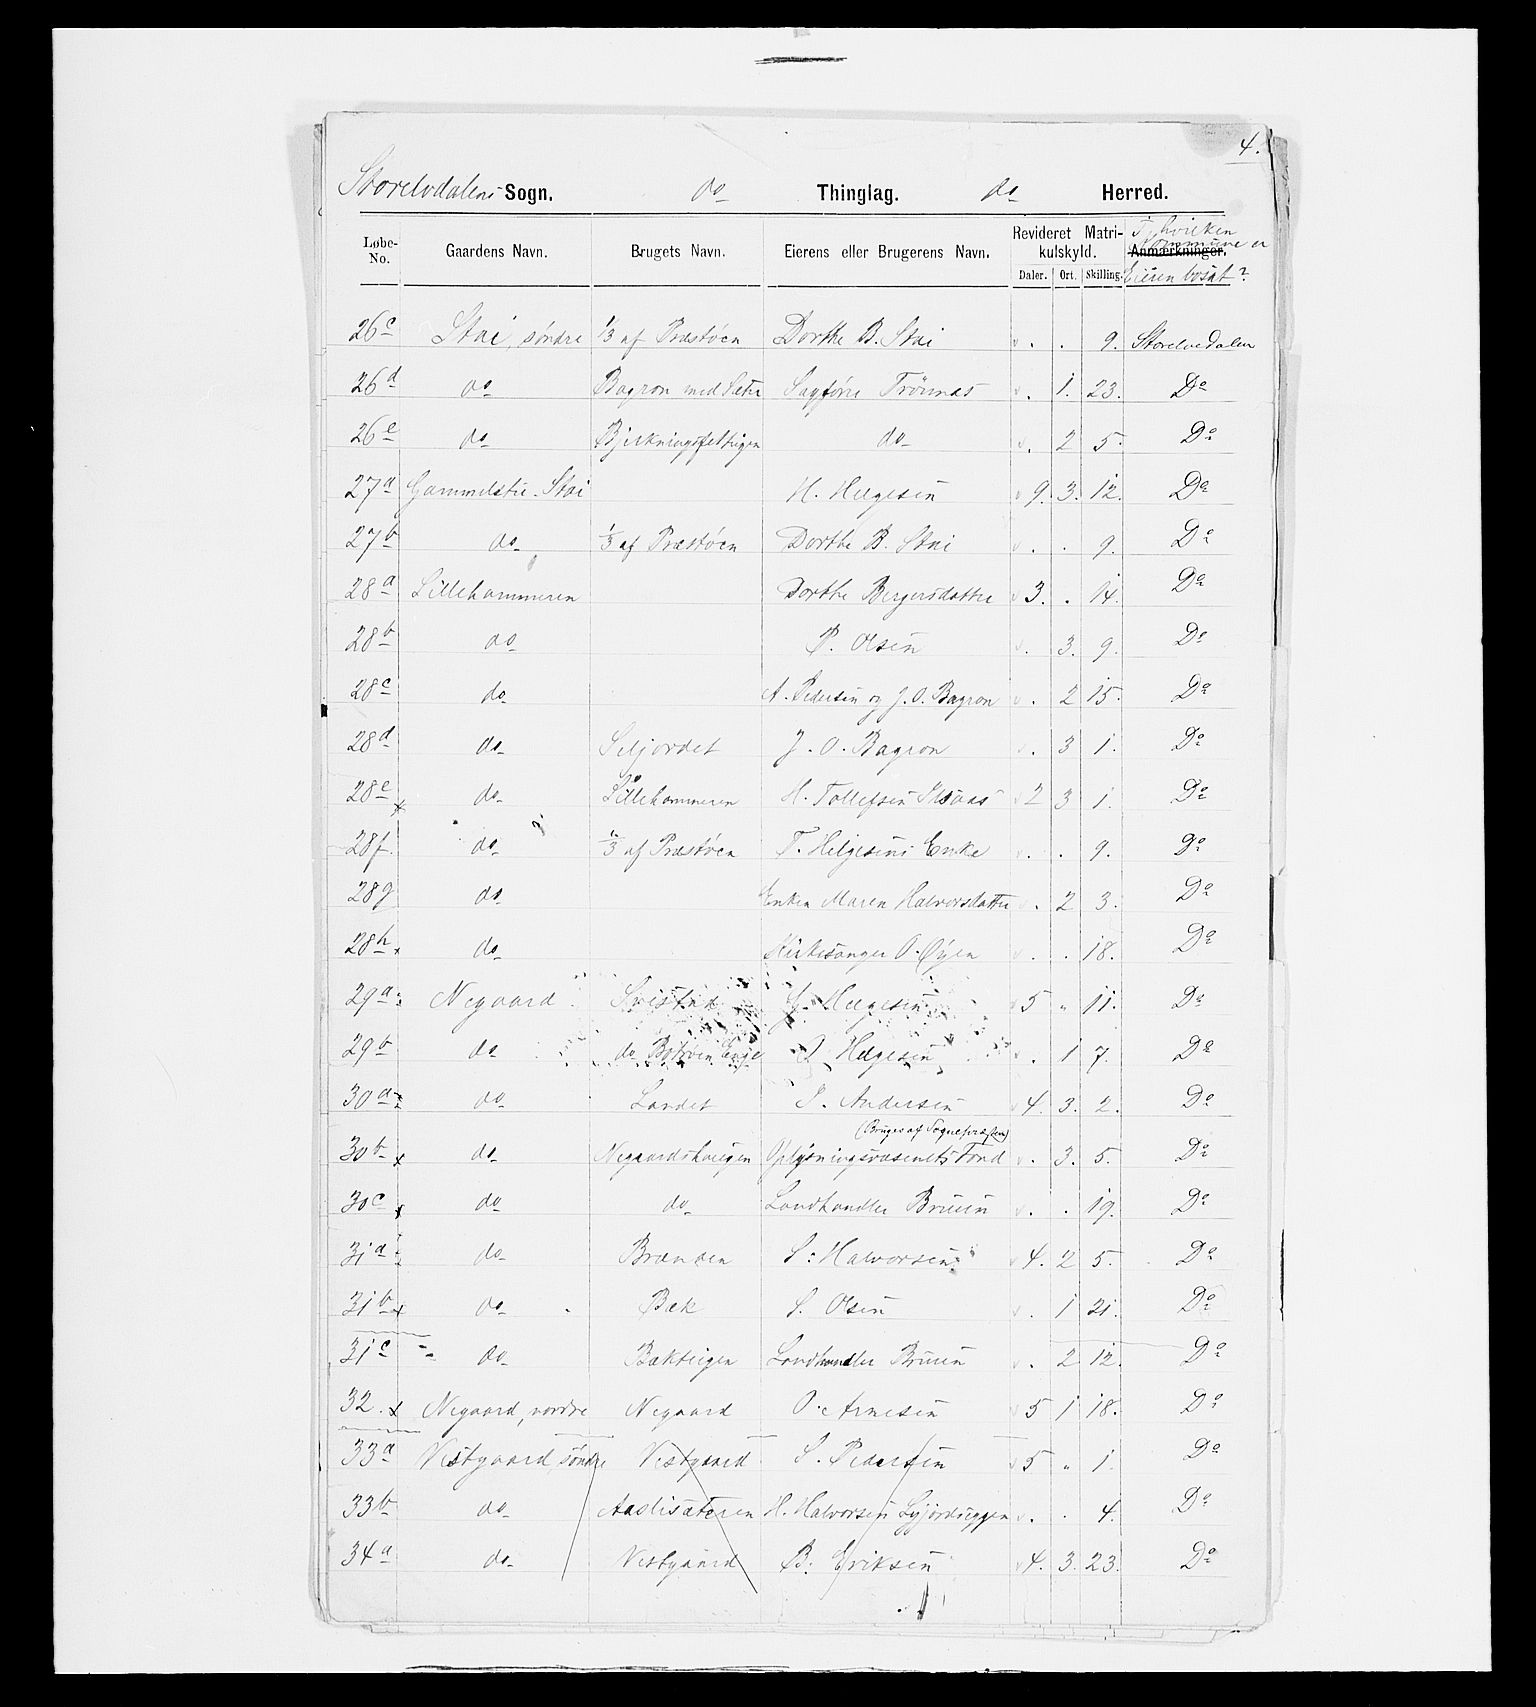 4.
Storelvdalens Sogn. do Thinglag. do Herred.
Løbe-No. Gaardens Navn. Brugets Navn. Eierens eller Brugerens Navn. Revideret Matrikulskyld. Daler. Ort. Skilling. Anmærkninger. I hvilken Kommune er Eieren bosat?
26c Stai søndre 1/3 af Præstøen Dorthe B. Stai . . 9. Storelvedalen
26d do Bagron med Sæter Sagfører Trönnæs . 1. 23. Do
26e do Bjerkningsfetteigen do . 2 5. Do
27a Gammelstu-Stai H. Helgesen 9. 3. 12. Do
27b do 1/3 af Præstøen Dorthe B. Stai . . 9. Do
28a Lillehammeren Dorthe Bergersdatter 3. . 14. Do
28b do P. Olsen . 3. 9. Do
28c do A. Pedersen og J. O. Bagron . 2 15. Do
28d do Seljordet J. O. Bagron . 3 1. Do
28e x do Lillehammeren H. Tollefsen 2 3 1. Do
28f. do 1/3 af Præstøen T. Helgesens Enke . . 9. Do
28g do Enken Maren Halvorsdatter . 2 3. Do
28h x do Kirkesanger O. Øyen . . 18. Do
29a Negaard Helgesen 5 " 11. Do
29b do do Enge Helgesen . 1 7. Do
30a do Landet P. Andersen 4. 3. 2. Do
(Bruges af Sognepræsten)
30b x do Negaardshaugen Oplysningsvæsenets Fond . 3. 5. Do
30c x do do Landhandler Bruun . . 19. Do
31a do Brænden S: Halvorsen 4. 2 5. Do
31b x do Bæk S. Olsen . 1 21. Do
31c do Bækteigen Landhandler Bruun . 2 12. Do
32. x Negaard, nordre Negaard O. Arnesen 5 1 18. Do
33a Vestgaard søndre Vestgaard S. Pedersen 5 " 1. Do
33b do Aaslisæteren H. Halvorsen . . 4. Do
34a do Vestgaard B: Eriksen 4. 3. 23. Do